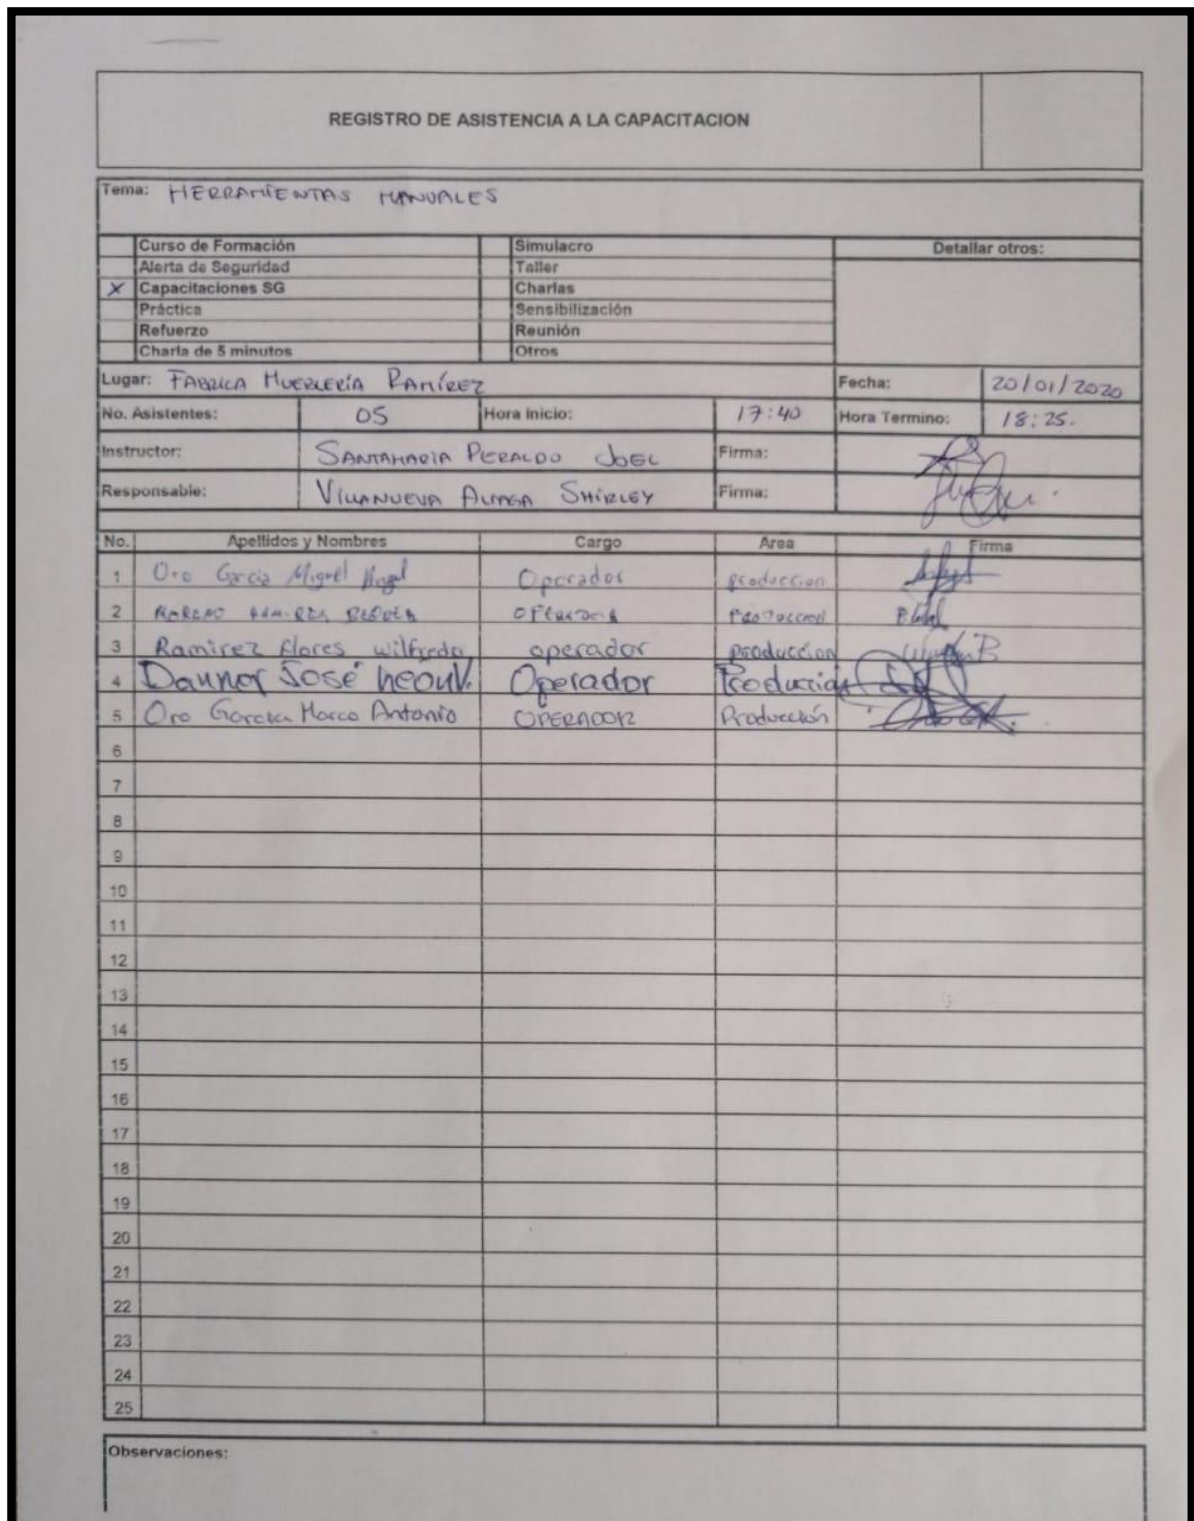 REGISTRO DE ASISTENCIA A LA CAPACITACION
Tema: HERRAMIENTAS MANUALES
Curso de Formación Simulacro Detallar otros:
Alerta de Seguridad Taller
X Capacitaciones SG Charlas
Práctica Sensibilización
Refuerzo Reunión
Charla de 5 minutos Otros
Lugar: FABRICA MUEBLERÍA RAMÍREZ Fecha: 20/01/2020
No. Asistentes: 05 Hora Inicio: 17:40 Hora Termino: 18:25.
Instructor: SANTAMARIA PERALDO JOEL Firma:
Responsable: VILLANUEVA ALIAGA SHIRLEY Firma:
No. Apellidos y Nombres Cargo Area Firma
1 Oro Garcia Miguel Angel Operador produccion
2 PRODUCCION
3 Ramirez flores wilfredo operador producción
4 Danner José Leon V. Operador Producción
5 Oro Garcia Marco Antonio OPERADOR Producción
6
7
8
9
10
11
12
13
14
15
16
17
18
19
20
21
22
23
24
25
Observaciones: